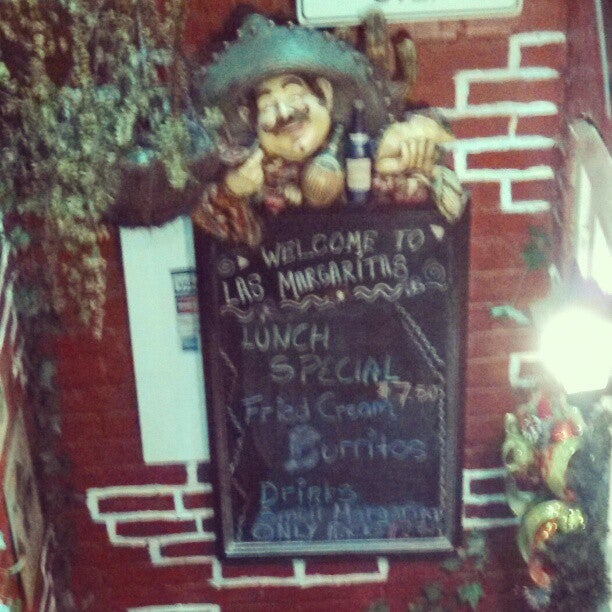 WELCOME TO
LAS MARGARITAS
LUNCH
SPECIAL
$7.50
Fried Cream
Burritos
Drinks
Margarita
ONLY